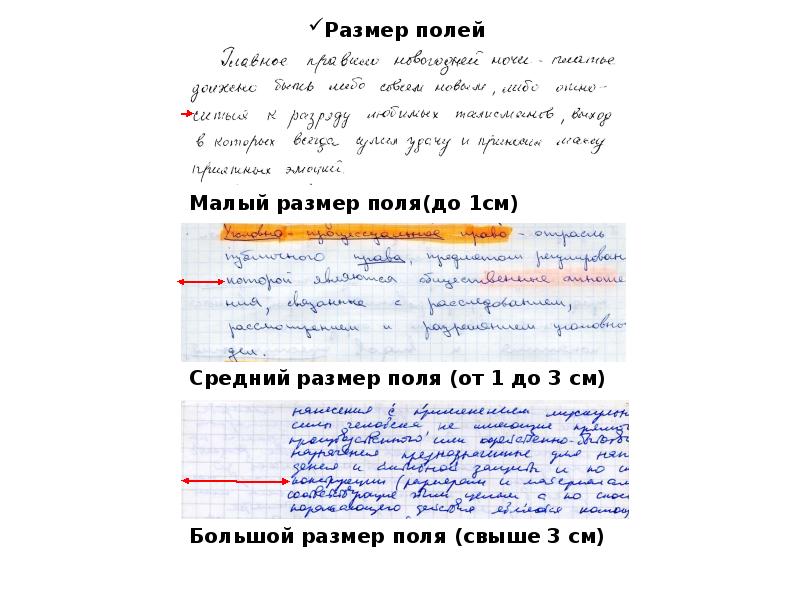 ✓ Размер полей
Главное правило новогодней ночи - платье
должно быть либо совсем новым, либо отно-
ситься к разряду любимых талисманов, выход
в которых всегда сулил удачу и принёс массу
приятных эмоций.
Малый размер поля(до 1см)
Уголовно - процессуальное право - отрасль
публичного права, предметом регулирован
которой являются общественные отноше
ния, связанные с расследованием,
рассмотрением и разрешением уголовны
дел.
Средний размер поля (от 1 до 3 см)
нанесения с применением мускульн
силы человека, не имеющие прямо
производственного или хозяйственно-бытово
назначения предназначенные для нап
дения и активной защиты и по
конструкции (размерам и материалам
соответствующие этим целям, а по спос
поражающего действия является
Большой размер поля (свыше 3 см)